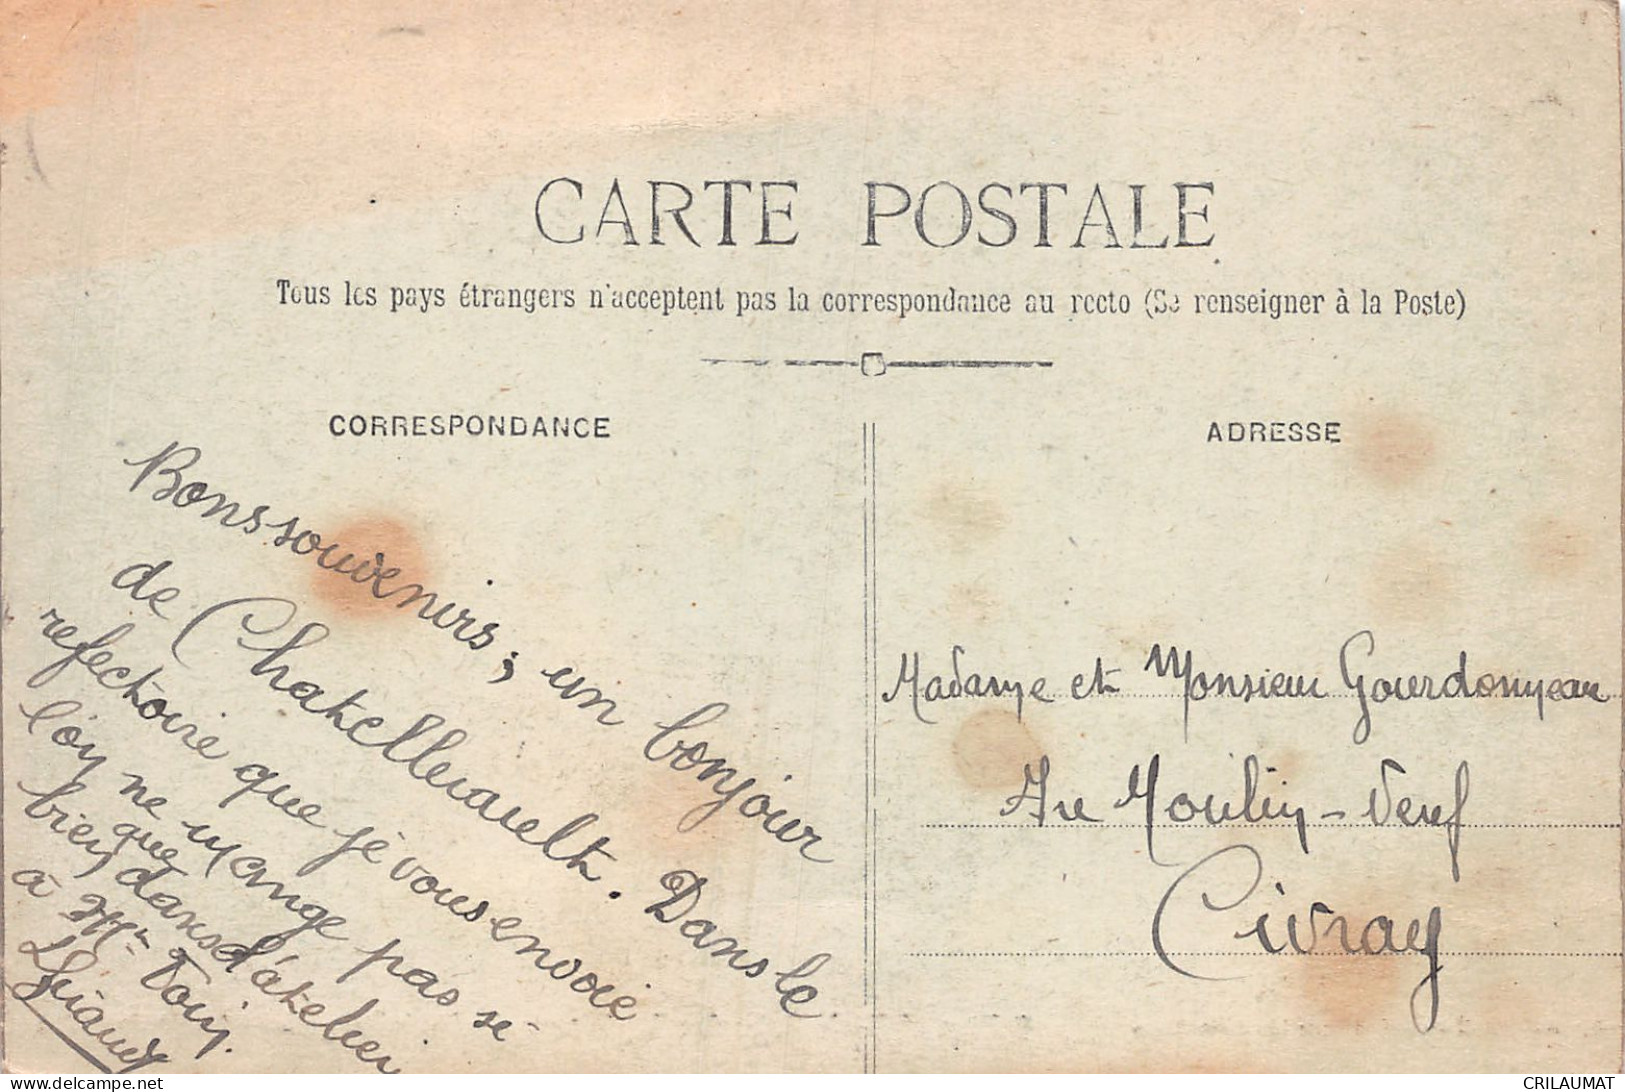 CARTE POSTALE
Tous les pays étrangers n'acceptent pas la correspondance au recto (Se renseigner à la Poste)
CORRESPONDANCE
Bons souvenirs, un bonjour
de Chatelleuarelt. Dans le
refectoire que je vous envoie
l'on ne mange pas si
bien que dans l'atelier
à Mr
ADRESSE
Madame et Monsieur Gourdonneau
Au Moulin-Neuf
Civray
CRILAUMAT